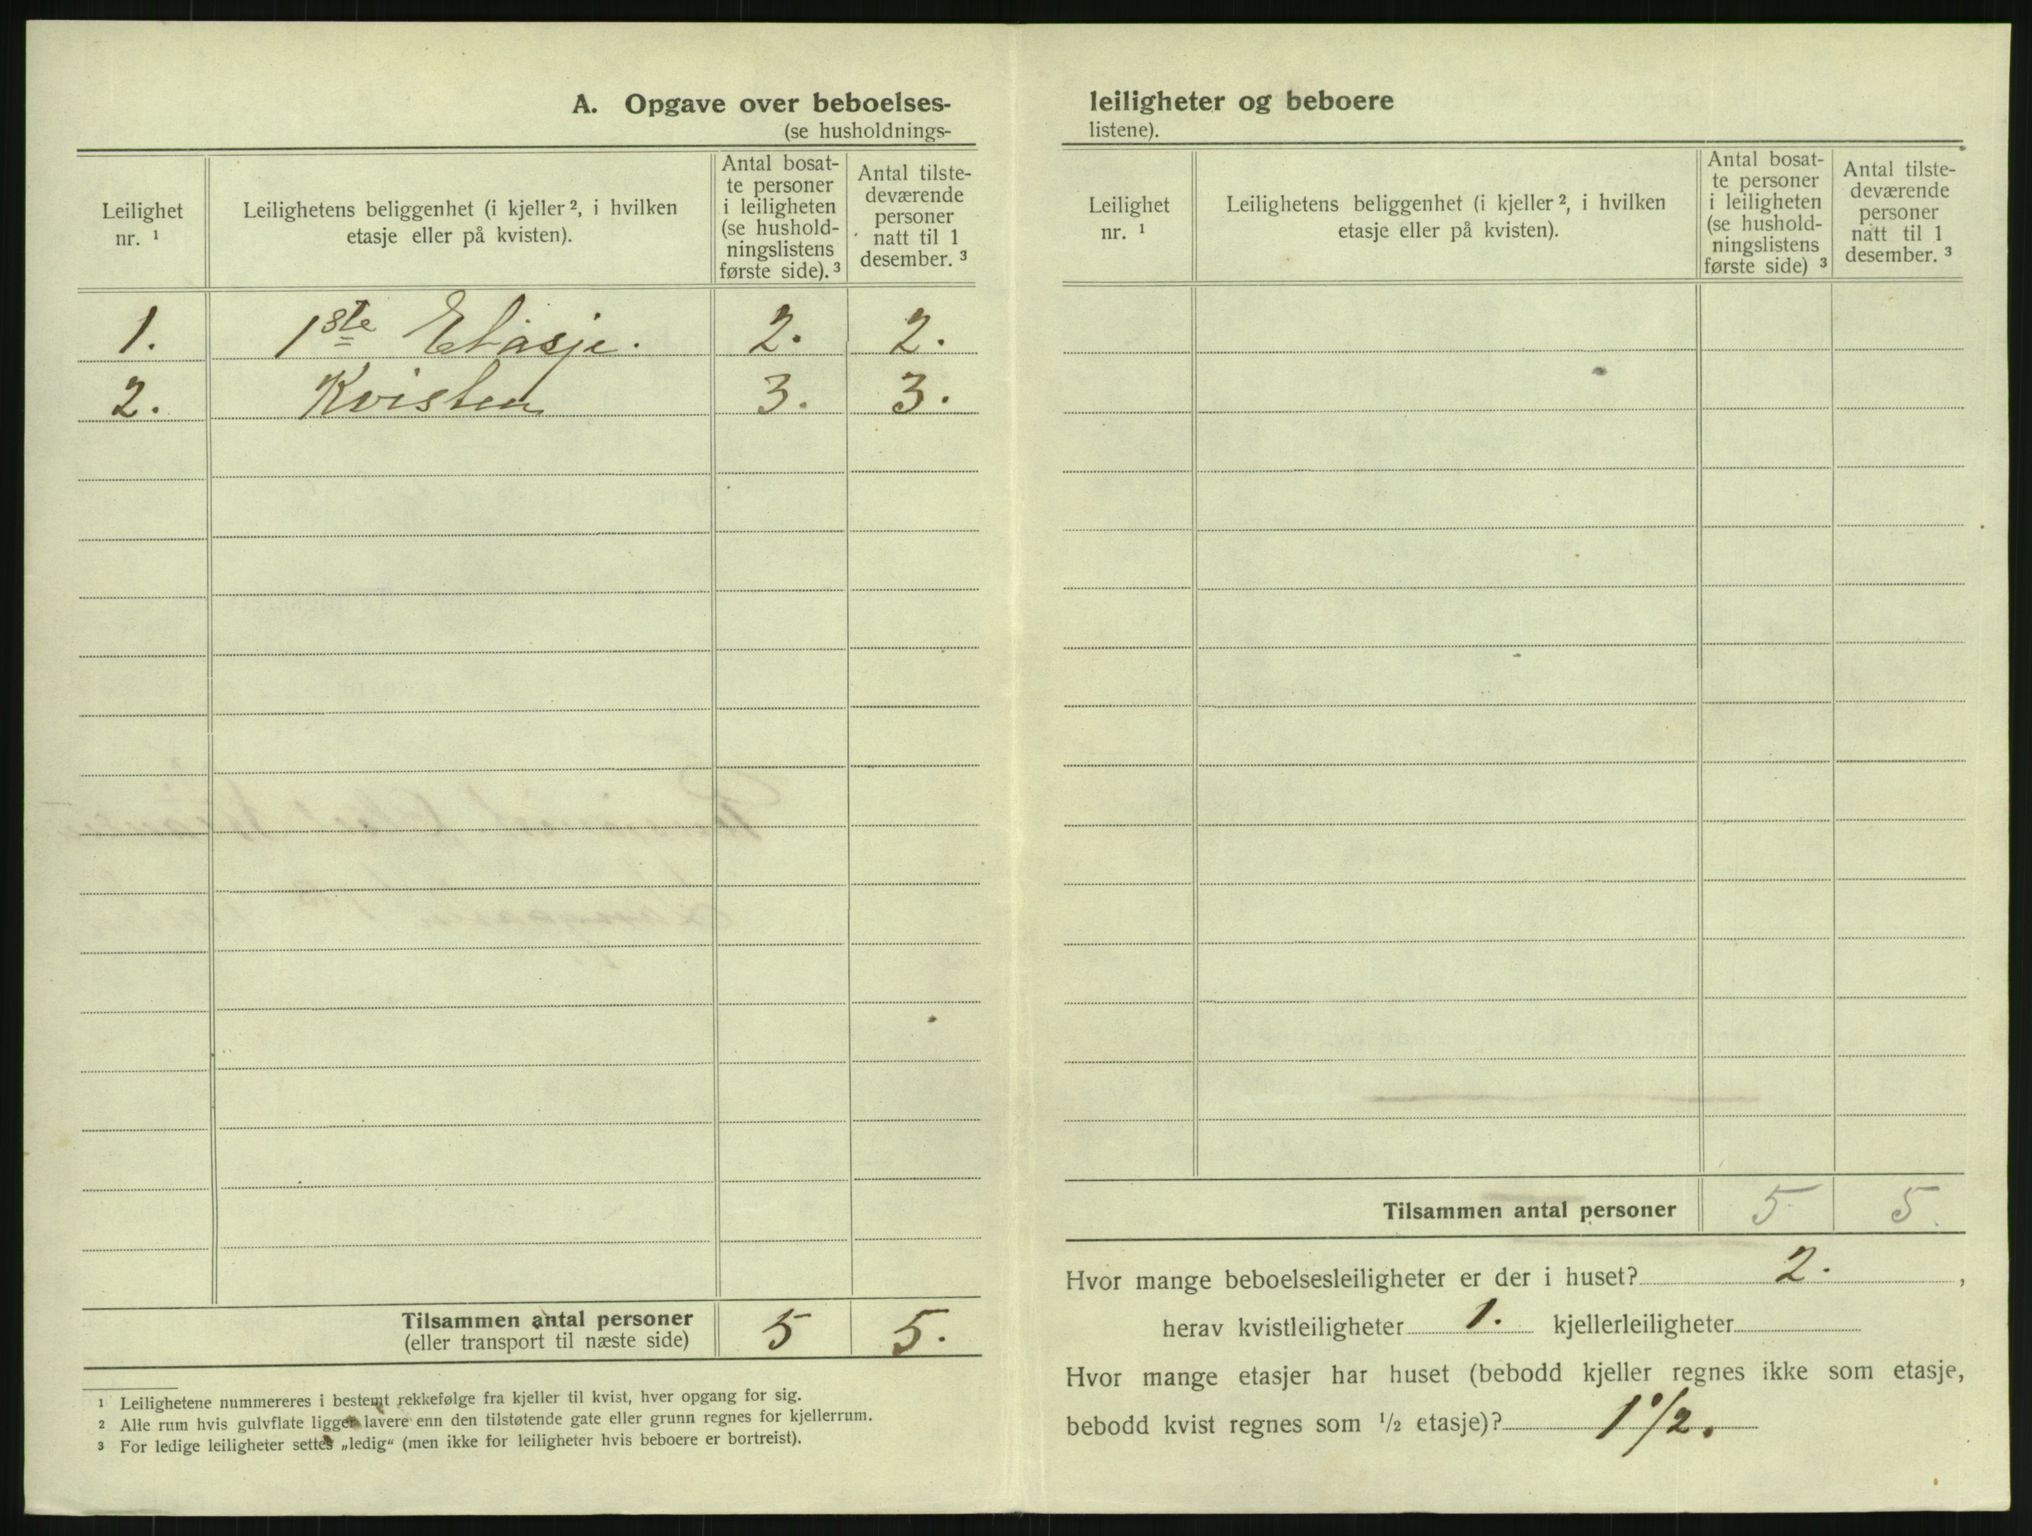 A. Opgave over beboelses-
(se husholdnings-
Leilighet
nr. ¹
Leilighetens beliggenhet (i kjeller ², i hvilken
etasje eller på kvisten).
Antal bosat-
te personer
i leiligheten
(se hushold-
ningslistens
første side). ³
Antal tilste-
deværende
personer
natt til 1
desember. ³
1. 1ste Etasje. 2. 2.
2. Kvisten 3. 3.
Tilsammen antal personer 5 5.
(eller transport til næste side)
¹ Leilighetene nummereres i bestemt rekkefølge fra kjeller til kvist, hver opgang for sig.
² Alle rum hvis gulvflate ligger lavere enn den tilstøtende gate eller grunn regnes for kjellerrum.
³ For ledige leiligheter settes „ledig“ (men ikke for leiligheter hvis beboere er bortreist).
leiligheter og beboere
listene).
Leilighet
nr. ¹
Leilighetens beliggenhet (i kjeller ², i hvilken
etasje eller på kvisten).
Antal bosat-
te personer
i leiligheten
(se hushold-
ningslistens
første side) ³
Antal tilste-
deværende
personer
natt til 1
desember. ³
Tilsammen antal personer 5 5.
Hvor mange beboelsesleiligheter er der i huset? 2. ,
herav kvistleiligheter 1. kjellerleiligheter
Hvor mange etasjer har huset (bebodd kjeller regnes ikke som etasje,
bebodd kvist regnes som ½ etasje)? 1 1/2.